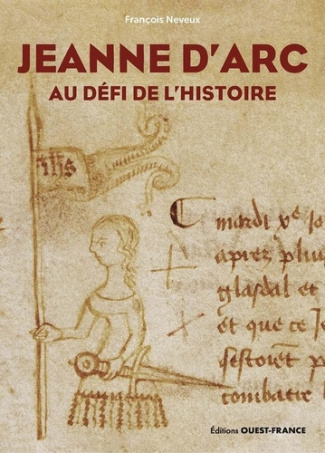 François Neveux
JEANNE D'ARC
AU DÉFI DE L'HISTOIRE
ihs
mardi xe jo
aprez plu
glasdal et
et que ce Je
festoiet p
combatre
Éditions OUEST-FRANCE